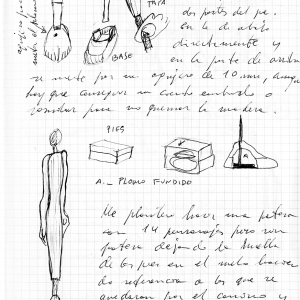 agujero para
meter el plomo
BASE
TAPA
dos partes del pie.
en la de abajo
directamente y
en la parte de arriba
se mete por un agujero de 10 mm, aunq
hay que conseguir un embudo o
para no quemar la madera.
PIES
A._ PLOMO FUNDIDO
Me planteo hacer una patera
con 14 personajes pero
patera dejando la huella
de los pies en el
de referencia a los que se
quedaron por el camino y